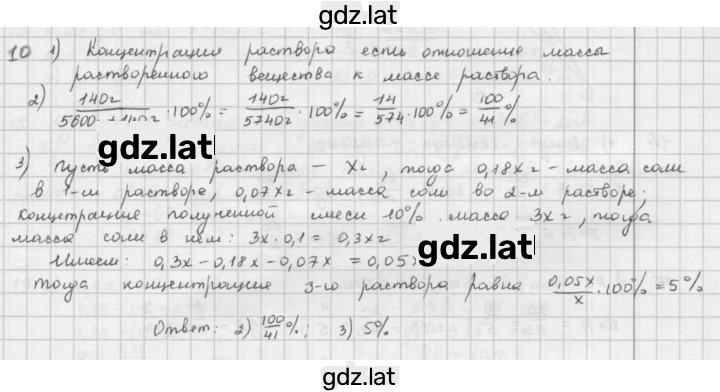 gdz.lat
10 1) Концентрация раствора есть отношение массы
растворенного вещества к массе раствора.
2) 140г/5600+140г · 100% = 140г/5740г · 100% = 14/574 · 100% = 100/41 %
gdz.lat
3) Пусть масса раствора – xг, тогда 0,18xг – масса соли
в 1-м растворе, 0,07xг – масса соли во 2-м растворе;
концентрация полученной смеси 10% масса 3xг, тогда
масса соли в нем: 3x·0,1 = 0,3xг
gdz.lat
Имеем: 0,3x – 0,18x – 0,07x = 0,05
тогда концентрация 3-го раствора равна 0,05x/x · 100% = 5%
Ответ: 2) 100/41 %; 3) 5%
gdz.lat